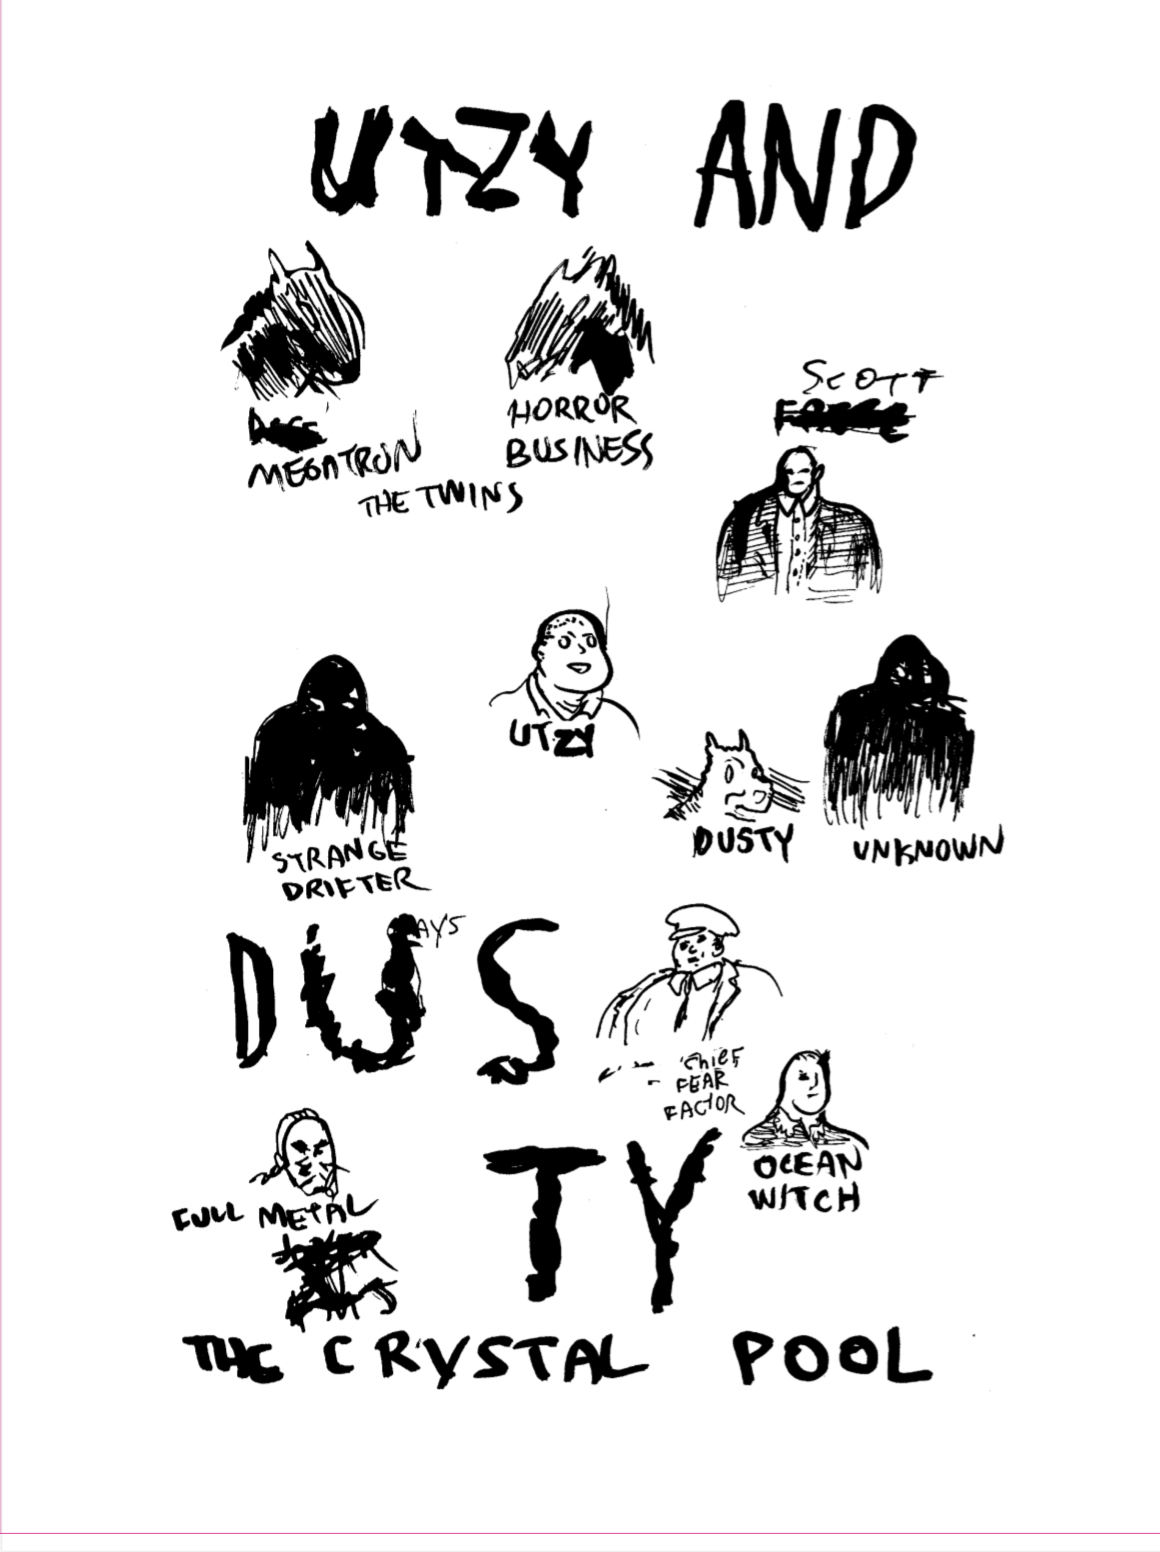 UTZY AND
MEGATRON
HORROR
BUSINESS
THE TWINS
SCOTT
UTZY
DUSTY
UNKNOWN
STRANGE
DRIFTER
DUS
AYS
Chief
FEAR
FACTOR
OCEAN
WITCH
FULL METAL
TY
THE CRYSTAL POOL